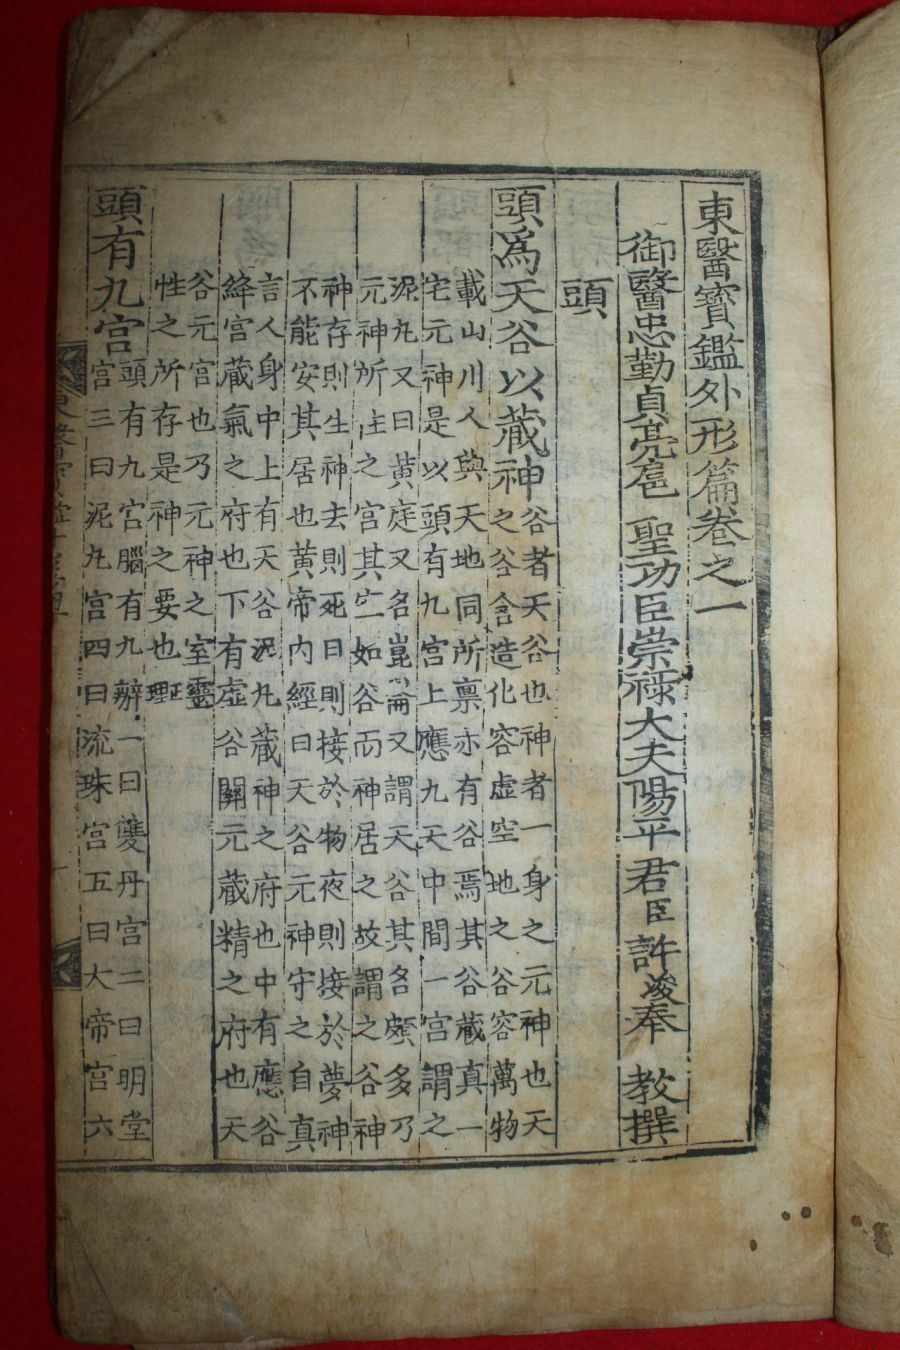 東醫寶鑑外形篇卷之一
御醫忠勤貞亮扈 聖功臣崇祿大夫陽平君臣許浚奉 教撰
頭
頭爲天谷以藏神
谷者天谷也神者一身之元神也天
之谷含造化容虛空地之谷容萬物
載山川人與天地同所稟亦有谷焉其谷藏真一
宅元神是以頭有九宮上應九天中間一宮謂之
泥丸又曰黃庭又名崑崙又謂天谷其名頗多乃
元神所住之宮其空如谷而神居之故謂之谷神
神存則生神去則死日則接於物夜則接於夢神
不能安其居也黃帝內經曰天谷元神守之自真
言人身中上有天谷泥丸藏神之府也中有應谷
絳宮藏氣之府也下有虛谷關元藏精之府也天
谷元宮也乃元神之室靈
性之所存是神之要也正理
頭有九宮
頭有九宮腦有九瓣一曰雙丹宮二曰明堂
宮三曰泥丸宮四曰流珠宮五曰大帝宮六